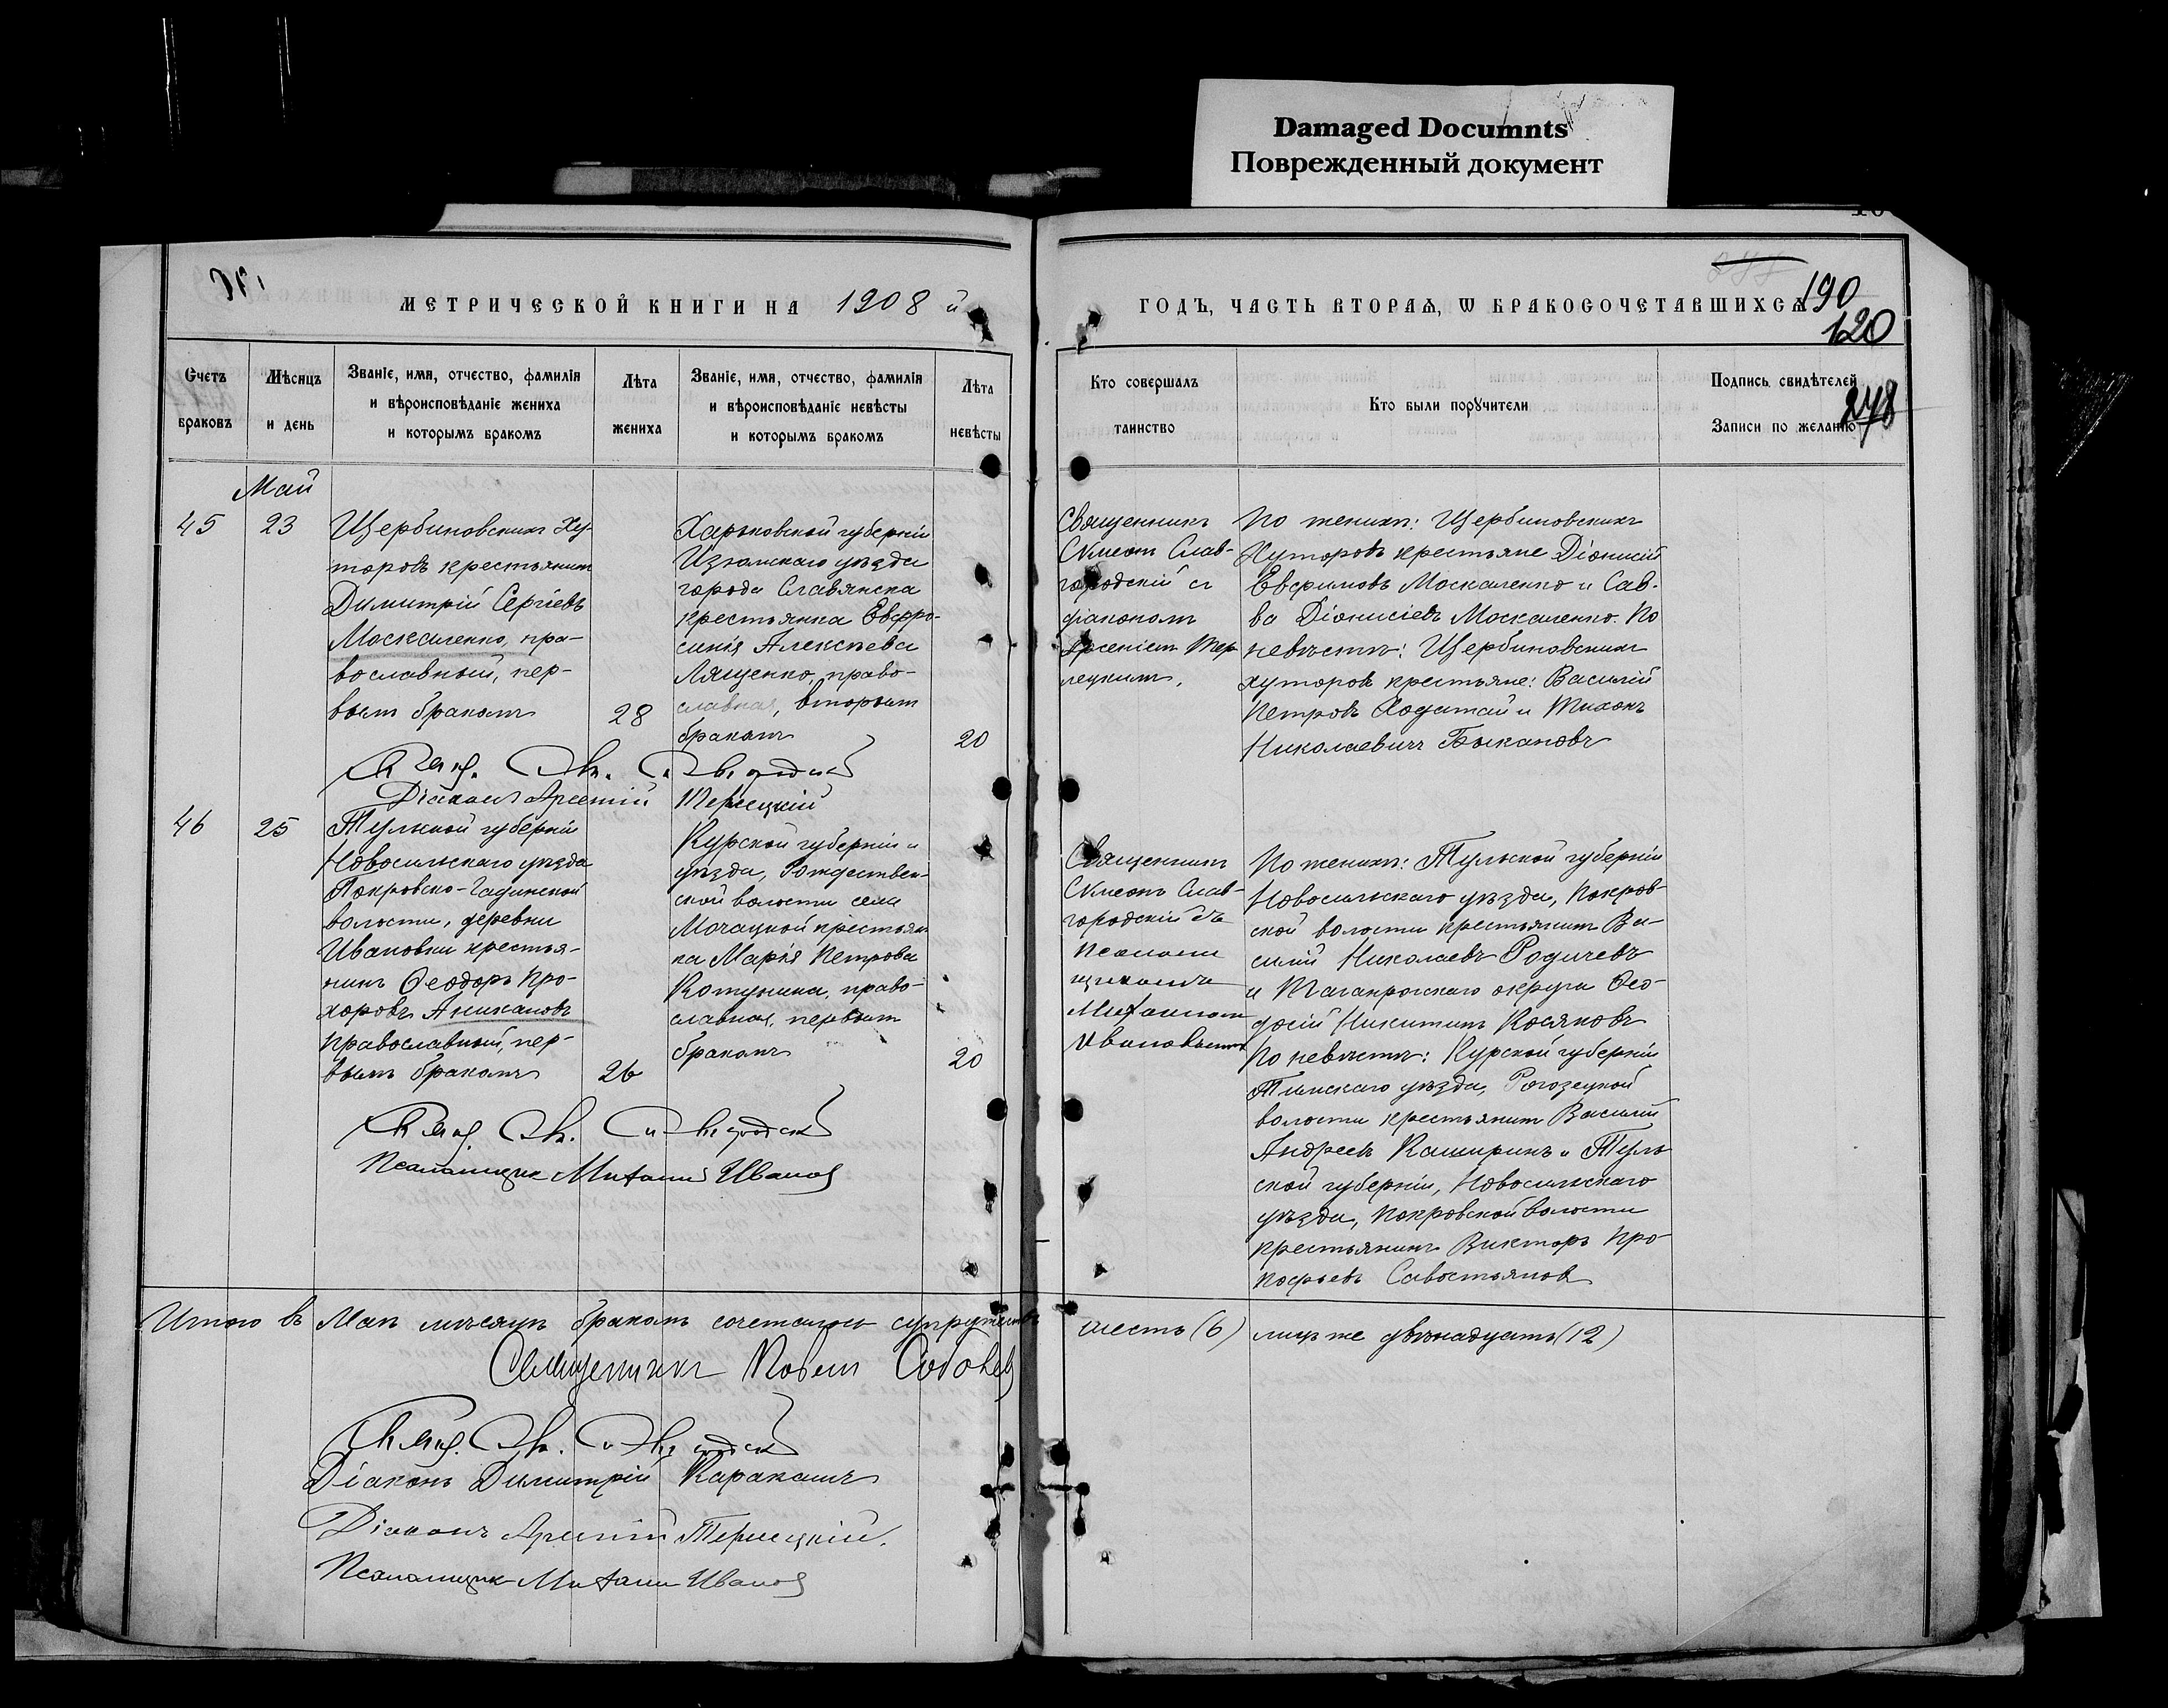 Damaged Documnts
Поврежденный документ
МЕТРИЧЕСКОЙ КНИГИ НА 1908 й
ГОДЪ, ЧАСТЬ ВТОРАЯ, Ѡ БРАКОСОЧЕТАВШИХСЯ
190
120
Счетъ браковъ
Мѣсяцъ и день
Званіе, имя, отчество, фамилія
и вѣроисповѣданіе жениха
и которымъ бракомъ
Лѣта жениха
Званіе, имя, отчество, фамилія
и вѣроисповѣданіе невѣсты
и которымъ бракомъ
Лѣта невѣсты
Кто совершалъ
таинство
Кто были поручители
Подпись свидѣтелей
Записи по желанію
278
Май
45
23
Щербиновскихъ Ху-
торовъ крестьянинъ
Димитрій Сергіевъ
Москаленко, пра-
вославный, пер-
вымъ бракомъ
28
Харьковской губерніи
Изюмскаго уѣзда
города Славянска
крестьянка Евфро-
синія Алексѣева
Лященко, право-
славная, вторымъ
бракомъ
20
Священникъ
Сѵмеонъ Слав-
городскій съ
діакономъ
Арсеніемъ Тер
лецкимъ.
По женихѣ: Щербиновскихъ
Хуторовъ крестьяне Діонисій
Евфимовъ Москаленко и Сав-
ва Діонисіевъ Москаленко. По
невѣстѣ: Щербиновскихъ
хуторовъ крестьяне: Василій
Петровъ Ходатай и Тихонъ
Николаевичъ Быкановъ
Діаконъ Арсеній Терлецкій
46
25
Тульской губерніи
Новосильскаго уѣзда
Покровско-Гадинской
волости, деревни
Ивановки крестья-
нинъ Ѳеодоръ Про-
хоровъ Аникановъ
православный, пер-
вымъ бракомъ
26
Курской губерніи и
уѣзда, Рождествен-
ской волости села
Мочацкой крестьян
ка Марія Петрова
Котунина, право-
славная, первымъ
бракомъ
20
Священникъ
Сѵмеонъ Слав-
городскій съ
псалом
щикомъ
Митланом
Ивановымъ
По женихѣ: Тульской губерніи
Новосильскаго уѣзда, Покров-
ской волости крестьянинъ Ва-
силій Николаевъ Родичевъ
и Таганрогскаго округа Ѳео-
досій Никитинъ Косяковъ
По невѣстѣ: Курской губерніи
Тимскаго уѣзда, Рогозецкой
волости крестьянинъ Василій
Андреевъ Каширинъ и Туль
ской губерніи, Новосильскаго
уѣзда, Покровской волости
крестьянинъ Викторъ Про-
кофьевъ Савостьяновъ
Псаломщикъ Ивановъ
Итого въ Маѣ мѣсяцѣ бракомъ сочеталось супружествъ шесть (6) лицъ же двѣнадцать (12)
Священникъ Павелъ
Діаконъ Димитрій Каракашъ
Діаконъ Арсеній Терлецкій.
Псаломщикъ Ивановъ